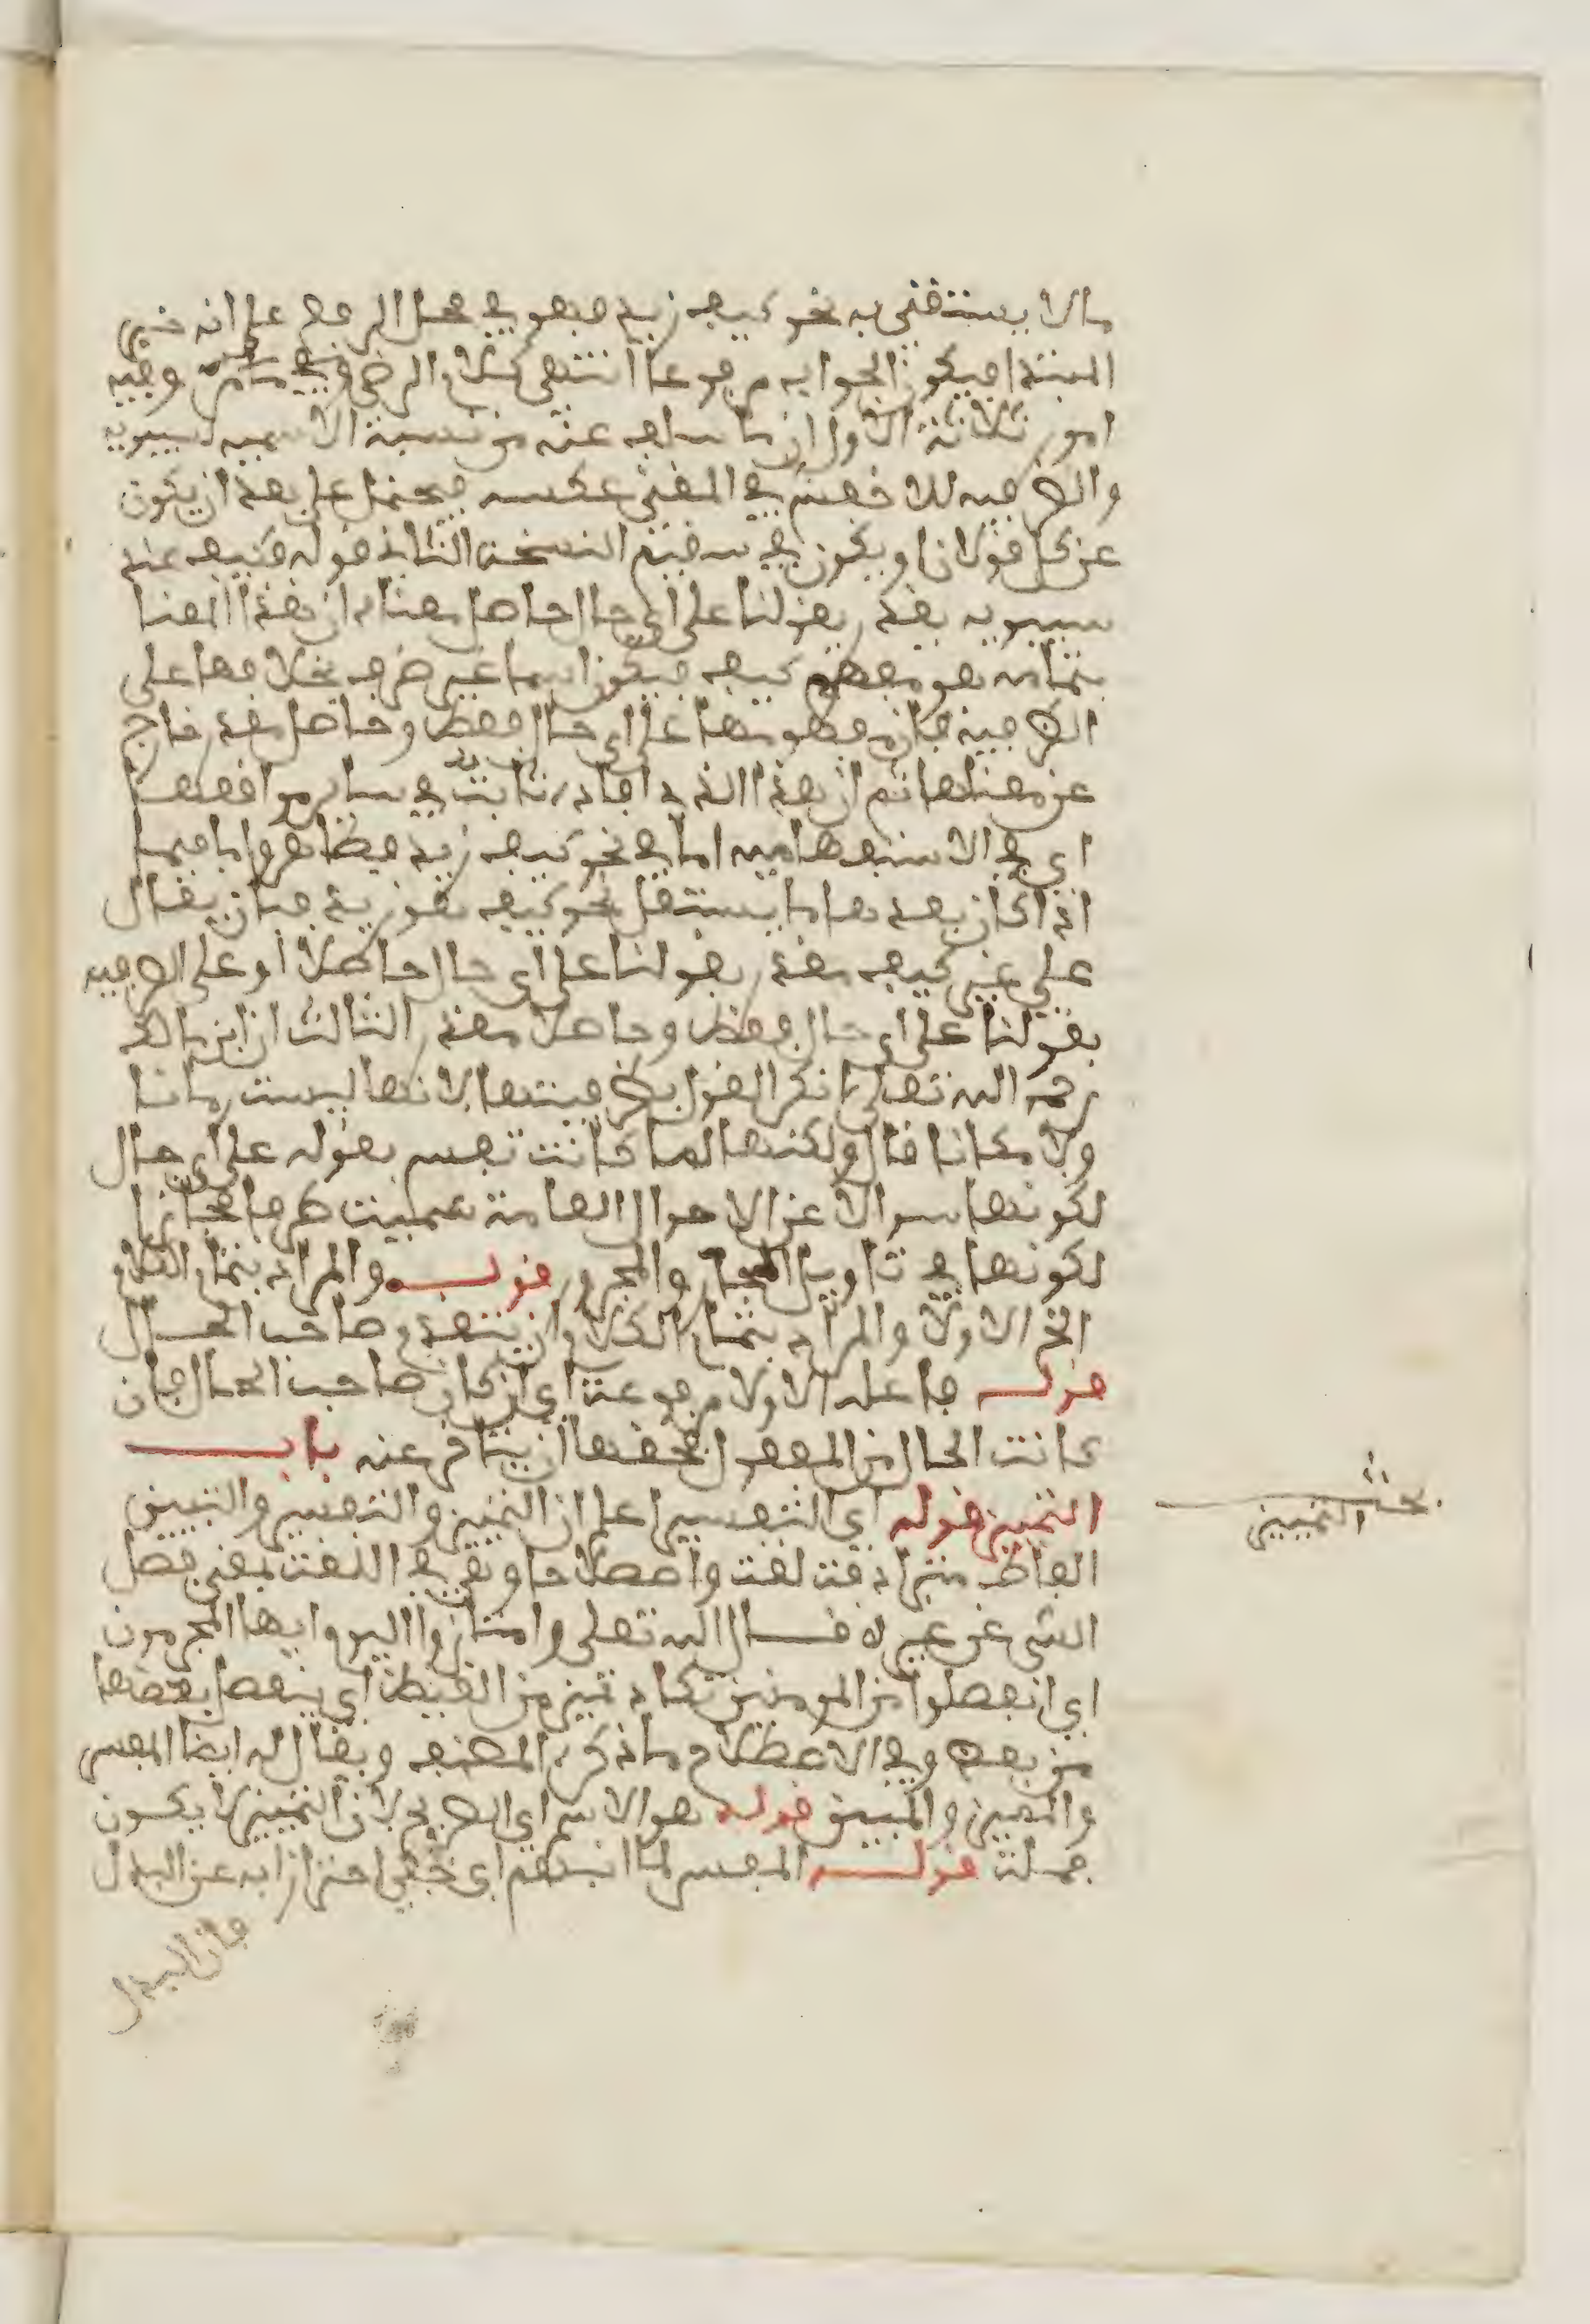 ما لا يستغني به نحو كيف زيد فهو في محل الرفع على انه خبر
المبتدا فيكون الجواب مرفوعا انتهى كلام الرضى وفيه
امور ثلاثة الاول ان ما سلف عنه من نسبة الاسمية لسيبويه
والظرفية للاخفش في المغني عكسه فيحتمل على بعد ان يكون
عن كل قولان او يكون في سقيم النسخة الثاني قوله فكيف عند
سيبويه بقدر بقولنا على اي حال حاصل معناه ان هذا المعنا
بتمامه هو مفهوم كيف فيكون اسما غير ظرف بخلافها على
الظرفية فان مفهومها على اي حال فقط وحاصل مقدر خارج
عن معناها ثم ان هذا الذي افاده ثابت في ساير مواقعها
اي في الاستفهامية اما في نحو كيف زيد فظاهر واما فيما
اذا كان بعدها ما يستقل نحو كيف يقوم زيد فبان يقال
على غير كيف مقدر بقولنا على اي حال حاصلا او على الظرفية
بقولنا على اي حال فقط وحاصلا مقدر الثالث ان ابن مالك
رحمه الله تعالى انكر القول بظرفيتها لانها ليست زمانا
ولا مكانا قال ولكنها لما كانت تفسر بقوله على اي حال
لكونها سوالا عن الاحوال العامة سميت ظرفا مجازا
لكونها في تاويل الجار والمجرور قولـه والمراد بتمام الكلام
الخ الاولا والمراد بتمام الكلام ان يتقدم صاحب الحال
قولـه فاعله الاولا مرفوعه اي ان كان صاحب الحال فان
كانت الحال من المفعول فحقها ان يتاخر عنه بابــ
التمييز قوله اي التفسير اعلم ان التمييز والتفسير والتبيين
الفاظ مترادفة لغة واصطلاحا وهي في اللغة بمعنى فصل
الشي عن غيره قـال الله تعلى وامتازوا اليوم ايها المجرمون
اي انفصلوا من المومنين تكاد تميز من الغيظ اي ينفصل بعضها
من بعض وفي الاصطلاح ما ذكره المصنف ويقال له ايضا المفسر
والمميز والمبين قولـه هو الاسم اي الصريح لان التمييز لا يكون
جملة قولـه المفسر لما انبهم اي خفي احترازا به عن البدل
فان البدل
بحث التمييز